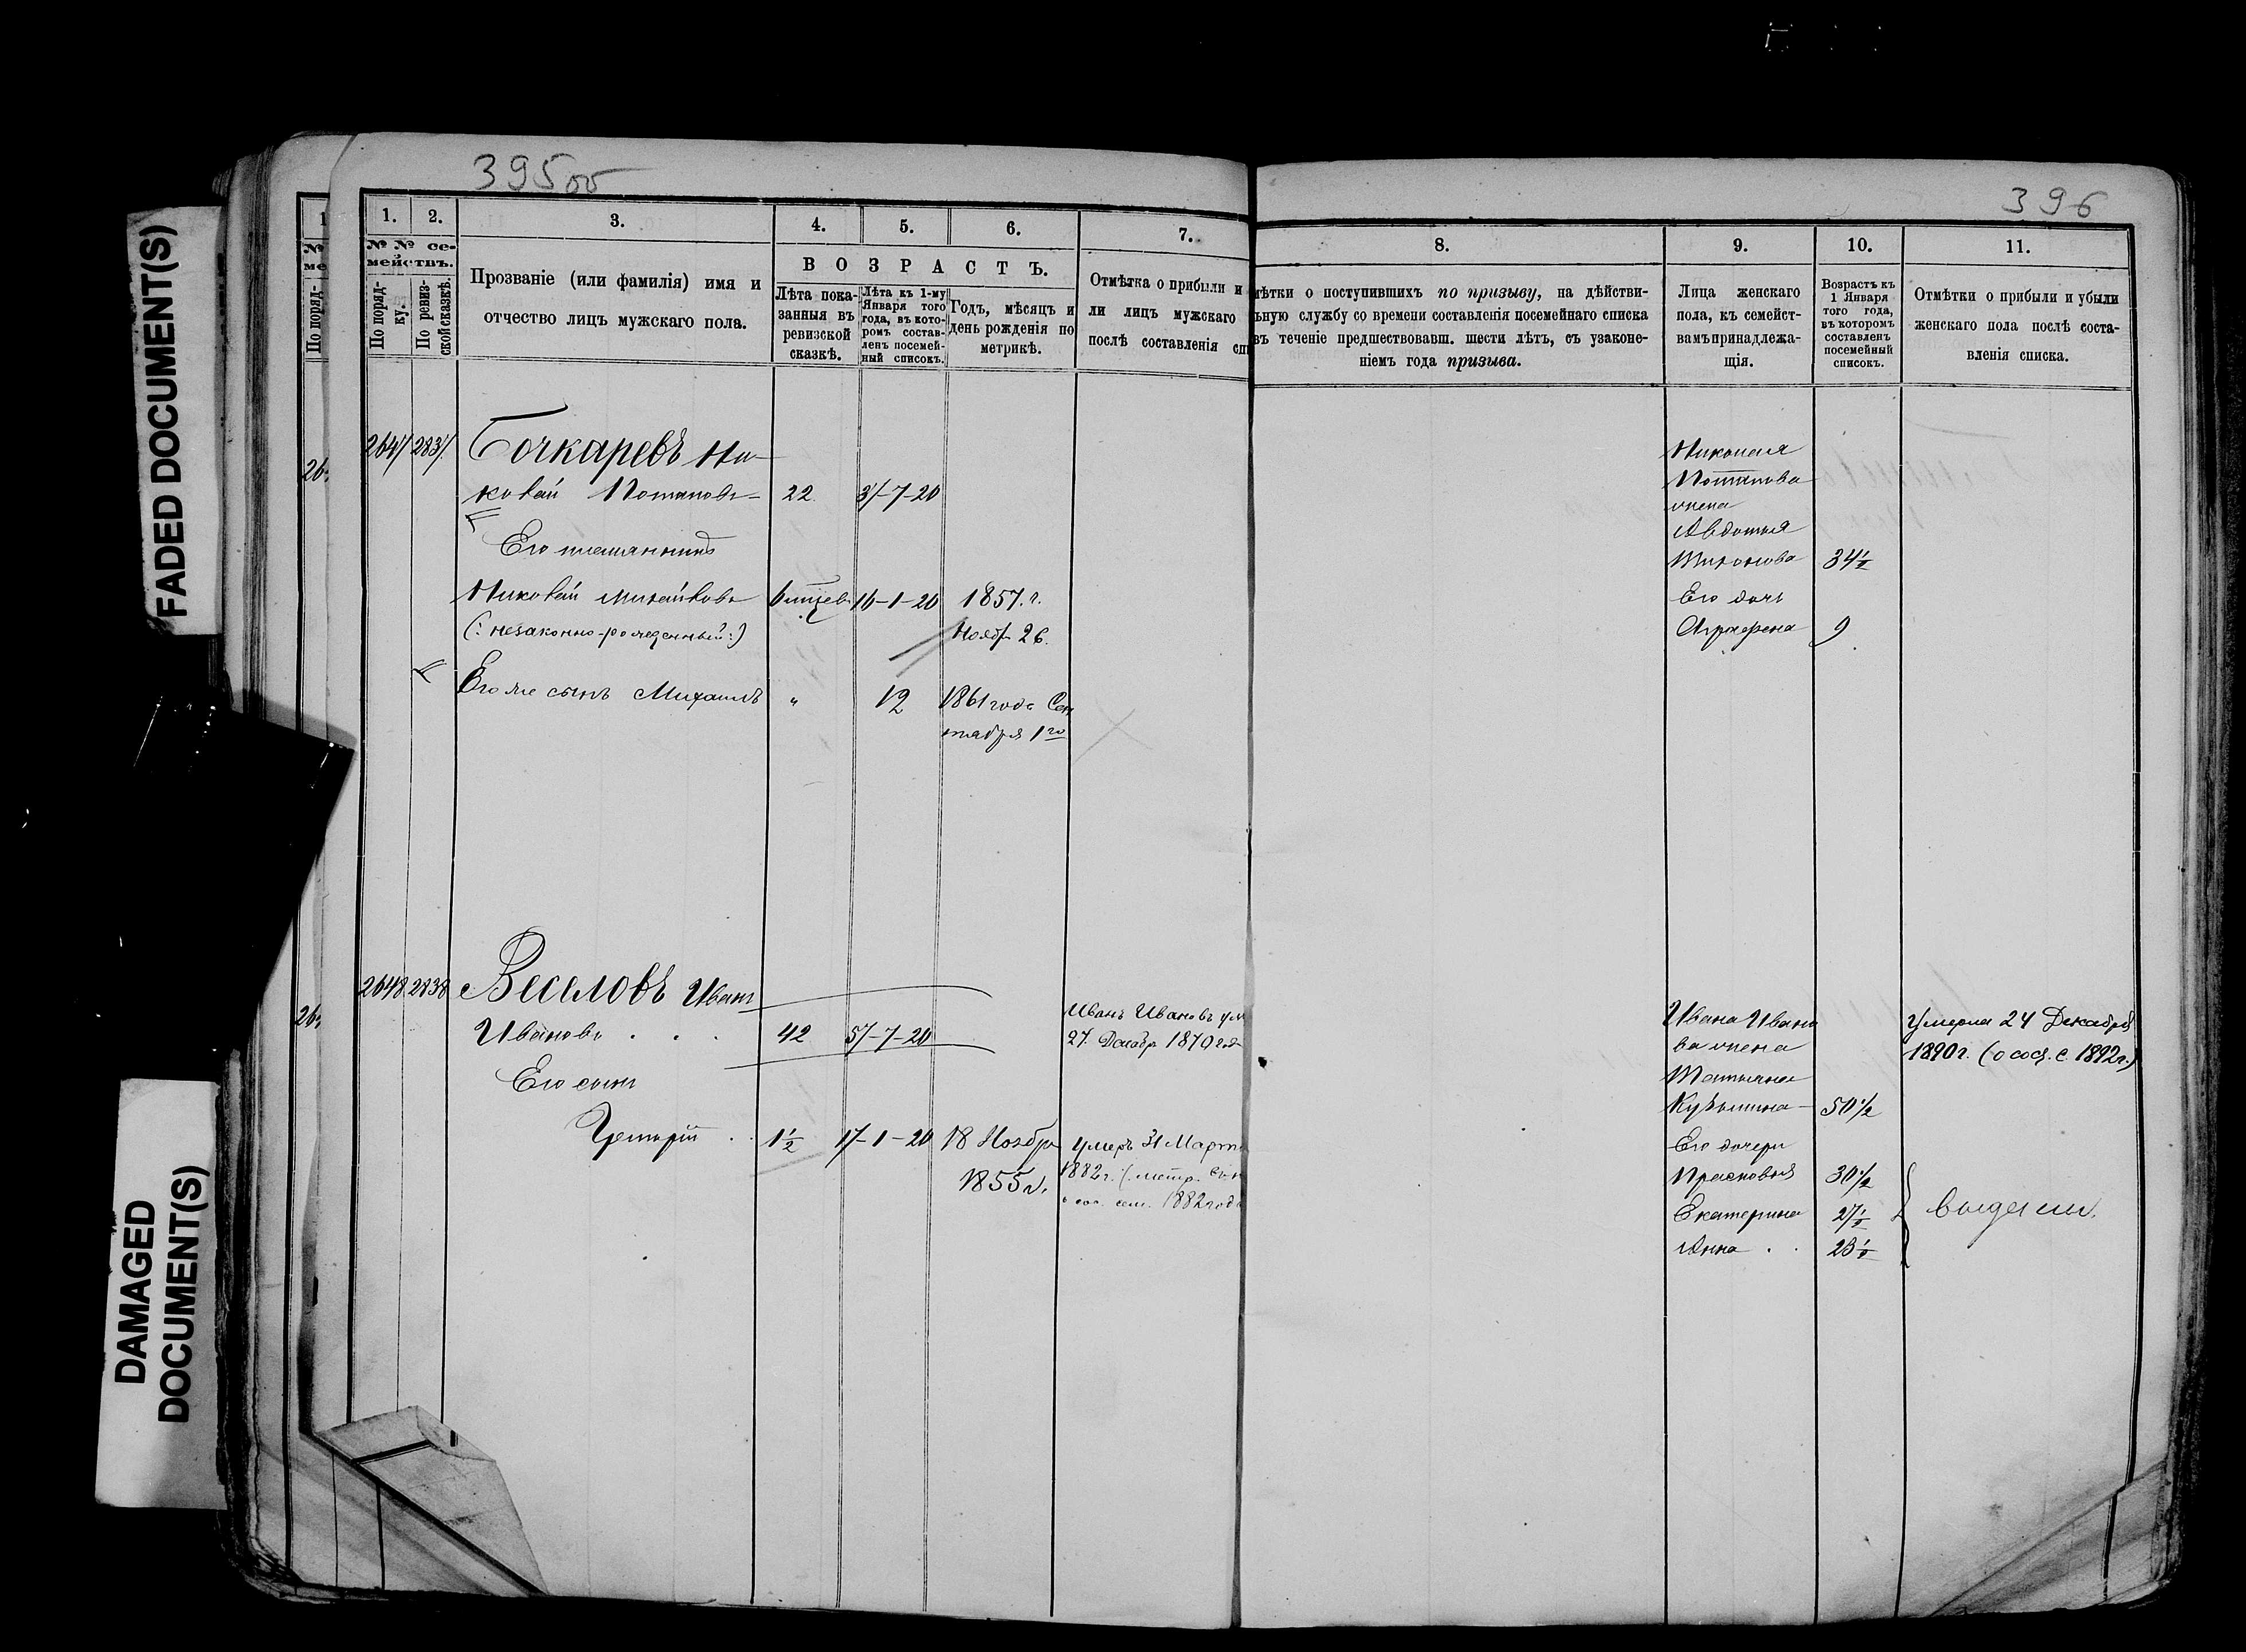 FADED DOCUMENT(S)
DAMAGED
DOCUMENT(S)
395 об
1.
2.
3.
4.
5.
6.
7.
№ № се-
мействъ.
По поряд-
ку.
По ревиз-
ской сказкѣ.
Прозваніе (или фамилія) имя и
отчество лицъ мужскаго пола.
ВОЗРАСТЪ.
Лѣта пока-
занныя въ
ревизской
сказкѣ.
Лѣта къ 1-му
Января того
года, въ кото-
ромъ состав-
ленъ посемей-
ный список.
Годъ, мѣсяцъ и
день рожденія по
метрикѣ.
Отмѣтка о прибыли и
ли лицъ мужскаго
послѣ составленія сп
2647 2837 Бочкаревъ Ни-
колай Потаповъ 22 37-7-20
Его племянникъ
Николай Михайловъ 16-1-20 1857. г.
(: незаконно-рожденный :) Нояб. 26.
Его же сынъ Михаилъ " 12 1861 года Сен
тября 1го
2648 2838 Веселовъ Иванъ
Ивановъ . . . 42 57-7-20
Иванъ Ивановъ ум
27. Декабр 1870 год
Его сынъ
Григорій . . 1½ 17-1-20 18 Ноября
1855 г.
умеръ 31 Марта
1882 г. (метр.
1882 года
396
8.
9.
10.
11.
мѣтки о поступившихъ по призыву, на дѣйстви-
ьную службу со времени составленія посемейнаго списка
въ теченіе предшествовавш. шести лѣтъ, съ узаконе-
ніемъ года призыва.
Лица женскаго
пола, къ семейст-
вамъ принадлежа-
щія.
Возрастъ къ
1 Января
того года,
въ которомъ
составленъ
посемейный
списокъ.
Отмѣтки о прибыли и убыли
женскаго пола послѣ соста-
вленія списка.
Николая
Потапова
жена
Авдотья
Миронова 34½
Его дочь
Аграфена 9
Ивана Ивано
ва жена
Татьяна
Кузьмина - 50½
Умерла 24 Декабря
1890 г. (о сост. с. 1892 г.)
Его дочери
Прасковья 30½
Екатерина 27½
Анна . . 23½